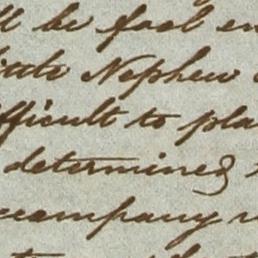 ll be fool en
little Nephew
difficult to pla
determined
accompany